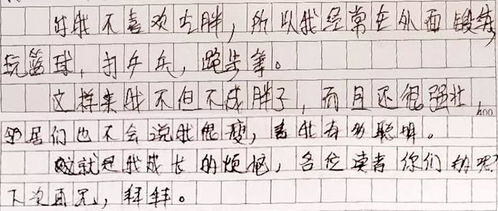 时我不喜欢太胖，所以我经常在外面锻炼，
玩篮球，打乒乓，跑步等。
这样来我不但不成胖子，而且还很强壮，
400
邻居们也不会说我很瘦，我有多聪明。
这就是我成长的烦恼，各位读者你们的呢？
下次再见，拜拜。